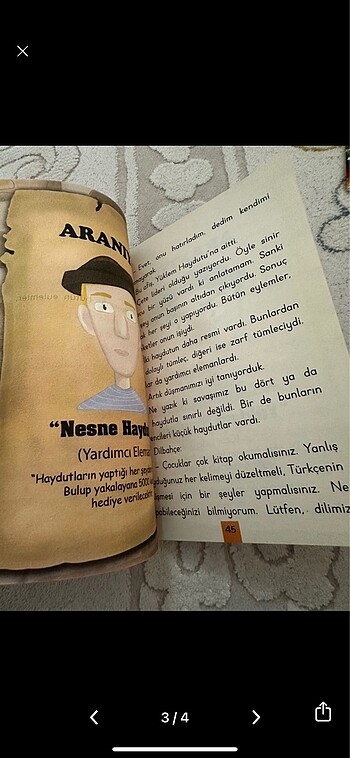 ARAN
"Nesne Hayd
(Yardımcı Elema
"Haydutların yaptığı her şeyden
Bulup yakalayana 5000
hediye verilecektir
Evet, onu hatırladım, dedim kendimi
afiş, Yüklem Haydutu'na aitti.
Çete lideri olduğu yazıyordu. Öyle sinir
bir yüzü vardı ki anlatamam. Sanki
şey onun başının altıdan çıkıyordu. Sonuç
her şeyi o yapıyordu. Bütün eylemler,
ketler onun işiydi.
İki haydutun daha resmi vardı. Bunlardan
dolaylı tümleç, diğeri ise zarf tümleciydi.
lar da yardımcı elemanlardı.
Artık düşmanımızı iyi tanıyorduk.
Ne yazık ki savaşımız bu dört ya da
haydutla sınırlı değildi. Bir de bunların
encileri küçük haydutlar vardı.
Dilbahçe:
– Çocuklar çok kitap okumalısınız. Yanlış
duyduğunuz her kelimeyi düzeltmeli, Türkçenin
işmesi için bir şeyler yapmalısınız. Ne
pabileceğinizi bilmiyorum. Lütfen, dilimiz
45
3/4